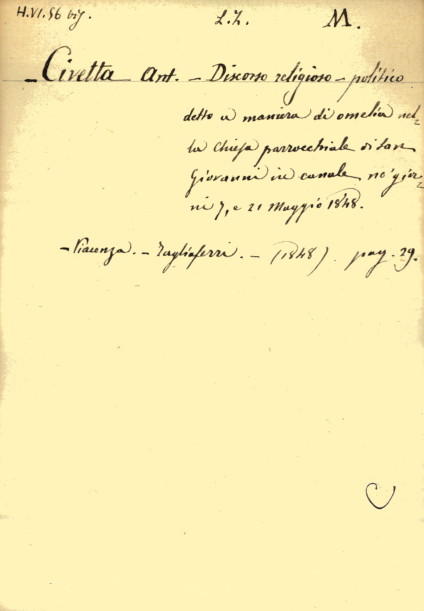 H.VI.56 bis L.Z. M.
_Civetta Ant. - Discorso religioso - politico
detto a maniera di omelia nel-
la chiesa parrocchiale di San
Giovanni in canale, ne' gior-
ni 7, e 21 Maggio 1848.
- Piacenza. - Tagliaferri. - (1848). pag. 29.